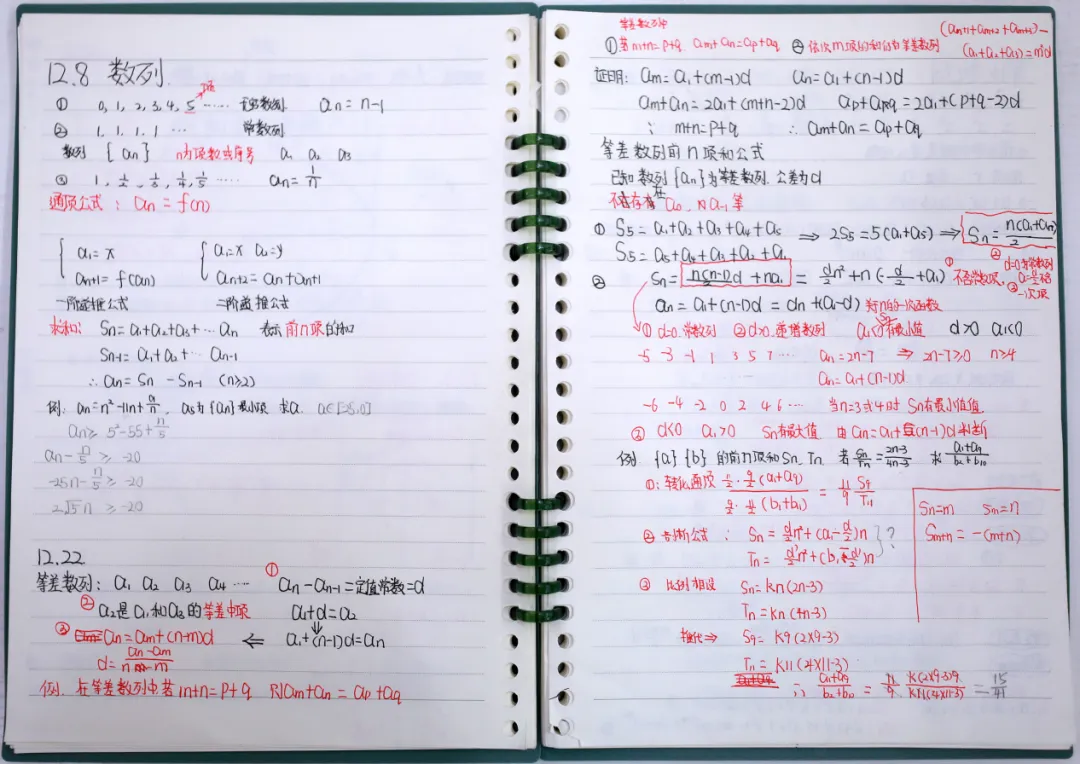 12.8 数列
① 0, 1, 2, 3, 4, 5 …… 无穷数列 an = n-1
项
② 1. 1. 1. 1 … 常数列
数列 {an} n为项数或序号 a1 a2 a3
③ 1, 1/2, 1/3, 1/4, 1/5 …… an = 1/n
通项公式: an = f(n)
{ a1 = x { a1=x a2=y
an+1 = f(an) an+2 = an+an+1
一阶递推公式 二阶递推公式
求和: Sn = a1+a2+a3+…an 表示前n项的和
Sn-1 = a1+a2+… an-1
∴ an = Sn - Sn-1 (n≥2)
例: an = n²-11n+a/n, a5为{an}最小项 求a. a∈[-25,0]
an ≥ 5²-55+n/5
an - n/5 ≥ -20
-25n - n/5 ≥ -20
2√5n ≥ -20
12.22
等差数列: a1 a2 a3 a4 … ① an-an-1=定值常数=d
② a2是a1和a3的等差中项 a1+d=a2
③ an=am+(n-m)d ⇐ a1+(n-1)d=an
d= (an-am)/(n-m)
例. 在等差数列中若 m+n=p+q 则am+an=ap+aq
等差数列中
① 若m+n=p+q. am+an=ap+aq ② 依次m项的和仍为等差数列 (am+1+am+2+am+3)-
(a1+a2+a3)=m²d
证明: am=a1+(m-1)d an=a1+(n-1)d
am+an=2a1+(m+n-2)d ap+aq=2a1+(p+q-2)d
∵ m+n=p+q ∴ am+an=ap+aq
等差数列前n项和公式
已知数列{an}为等差数列. 公差为d
不存在 a0, 及a-1等
① S5=a1+a2+a3+a4+a5 ⇒ 2S5=5(a1+a5) ⇒ Sn=n(a1+an)/2
S5=a5+a4+a3+a2+a1
② Sn= n(n-1)d/2 + na1 = d/2 n²+n(-d/2+a1) ① 不含常数项. ② d=0为常数列
an=a1+(n-1)d=dn+(a1-d) 关于n的一次函数
① d=0.常数列 ② d>0.递增数列 a1<0 Sn有最小值 d>0 a1<0
-5 -3 -1 1 3 5 7 … an=2n-7 ⇒ 2n-7≥0 n≥4
an=a1+(n-1)d
-6 -4 -2 0 2 4 6 … 当n=3或4时 Sn有最小值.
③ d<0 a1>0 Sn有最大值 由an=a1+(n-1)d判断
例 {a} {b} 的前n项和Sn、Tn 若 Sn/Tn=(2n-3)/(4n-3) 求
①: 转化通项 = 11/9 S9/T11
② 公式: Sn=d/2n²+(a1-d/2)n
Tn=d'/2n²+(b1-d'/2)n } ?
③ 比例相设 Sn=kn(2n-3)
Tn=kn(4n-3)
⇒ S9=k9(2×9-3)
Tn=k11(4×11-3)
∴ = 11/9 k(2×9-3)9/k11(4×11-3) = 15/41
Sn=m Sm=n
Sm+n=-(m+n)